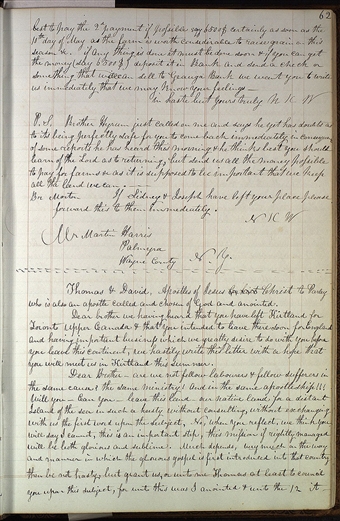 62
best to pay the 2nd payment if possible say $500 certainly as soon as the
10th day of May as the farmer wants considerable to raise grain on this
season &c. if any thing is done it must be done soon & if you can get
the money (say $500) deposit it in Bank and send a check or
something that we can sell to Granger Bank we want you to write
us immediately that we may know your feelings—
In haste but yours truly N K W
P.S. Brother Hyrum just called on me and says he yet has doubts as
to its being perfectly safe for you to come back immediately in consequence
of some reports he has heard this morning & he thinks best you should
learn of the Lord as to returning, but send us all the money possible
to pay for farms &c as it is supposed to be important that we keep
all the land we can.
Bro Martin If Sidney & Joseph have left your place please
forward this to them immediately.
N K W
Mr Martin Harris
Palmyra
Wayne County N. Y.
Thomas & David, Apostles of Jesus Christ to Parley
who is also an apostle called and chosen of God and anointed.
Dear brother we having heard that you have left Kirtland for
Toronto Upper Canada & that you intended to leave there soon for England
and having important business which we greatly desire to do with you before
you leave this continent; we hastily write this letter with a hope that
you will meet us in Kirtland this summer.
Dear Brother are we not fellow laborers & fellow sufferers in
the same cause & the same ministry & and in the same apostleship !!!
Will you — Can you — leave this land our native land for a distant
Island of the sea in such a hurry without consulting, without exchanging
with us the first word upon the subject, No, when you reflect, we think you
will say I cannot, this is an important step; this mission if rightly managed
will be both glorious and sublime. Much depends, very much on the way
and manner in which the glorious gospel is first introduced into that country
then be not hasty; but grant us, or unto me Thomas at least to counsel
you upon this subject, for unto this was I anointed & unto the 12 it